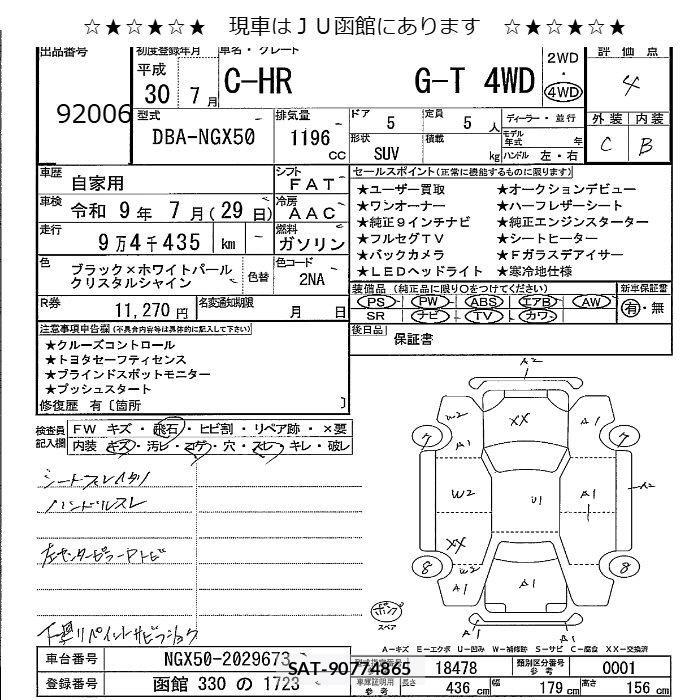 ☆★☆★☆★ 現車はＪＵ函館にあります ☆★☆★☆★
出品番号 初度登録年月 車名・グレード 評価点
92006 平成 30 7月 C-HR G-T 4WD 2WD・4WD 4
型式 DBA-NGX50 排気量 1196 CC
ドア 5 定員 5人 ディーラー・並行 外装 内装
形状 SUV 積載 kg モデル年式 年 ハンドル 左・右 C B
車歴 自家用 シフト FAT
車検 令和 9年 7月(29日) 冷房 AAC
走行 9万4千435 km 燃料 ガソリン
色 ブラック×ホワイトパールクリスタルシャイン 色替 色コード 2NA
R券 11,270円 名変通知期限 月 日
セールスポイント(正常に機能するものに限ります)
★ユーザー買取 ★オークションデビュー
★ワンオーナー ★ハーフレザーシート
★純正9インチナビ ★純正エンジンスターター
★フルセグTV ★シートヒーター
★バックカメラ ★Fガラスデアイサー
★LEDヘッドライト ★寒冷地仕様
装備品(純正品に限り○をつけてください) 新車保証書
PS PW ABS エアB AW 有・無
SR ナビ TV カワ
後日品 保証書
注意事項申告欄(不具合内容等は具体的に記入して下さい)
★クルーズコントロール
★トヨタセーフティセンス
★ブラインドスポットモニター
★プッシュスタート
修復歴 有〔箇所 〕
検査員記入欄
FW キズ・飛石・ヒビ割・リペア跡・×要
内装 キズ・汚レ・コゲ・穴・スレ・キレ・破レ
シートスレ
ハンドルスレ
左センターピラーPトビ
下廻リペイントサビ
A2
W2 XX A1
7 A1 7
W2 U1 A1 A2
XX
8 W2 8
A1 A1 A1
A1
スペア
A-キズ E-エクボ U-凹み W-補修跡 S-サビ C-腐食 XX-交換済
車台番号 NGX50-2029673
SAT-90774865
18478 類別区分番号 参考 0001
登録番号 函館 330 の 1723
車庫証明用 参考 長さ 436 cm 幅 179 cm 高さ 156 cm